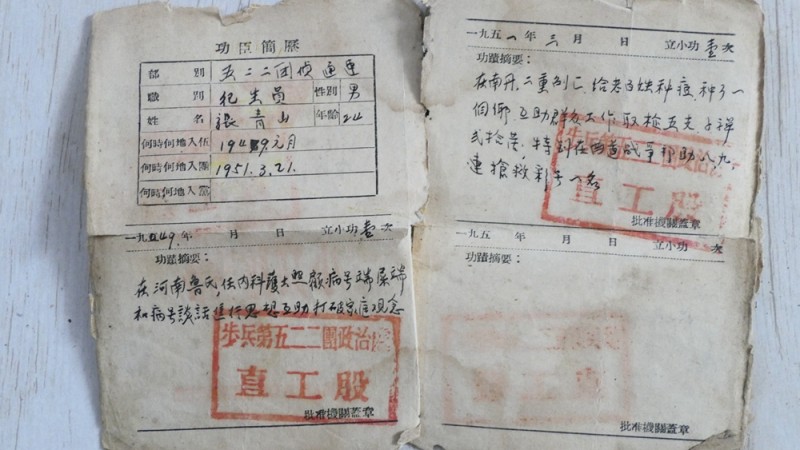 功臣簡歷
部別 五二二团侦通連
職別 犯生員 性別 男
姓名 張青山 年齡 24
何時何地入伍 1949元月
何時何地入團 1951.3.21.
何時何地入黨
一九四49年 月 日 立小功壹次
功蹟摘要：
在河南鲁氏，任内科護士照顧病号端屎端
和病号談話進行思想互助打破家庭观念
步兵第五二二團政治處
直工股
批准機關蓋章
一九五一年三月 日 立小功壹次
功蹟摘要：
在南丹、二重
給老百姓种痘，种了一
個鄉互助群众工作取枪五支子弹
特别在西
战争帮助八九
連搶救
一名
步兵第五二
直工
批准機關蓋章
一九五 年 月 日 立小功 次
功蹟摘要：
批准機關蓋章